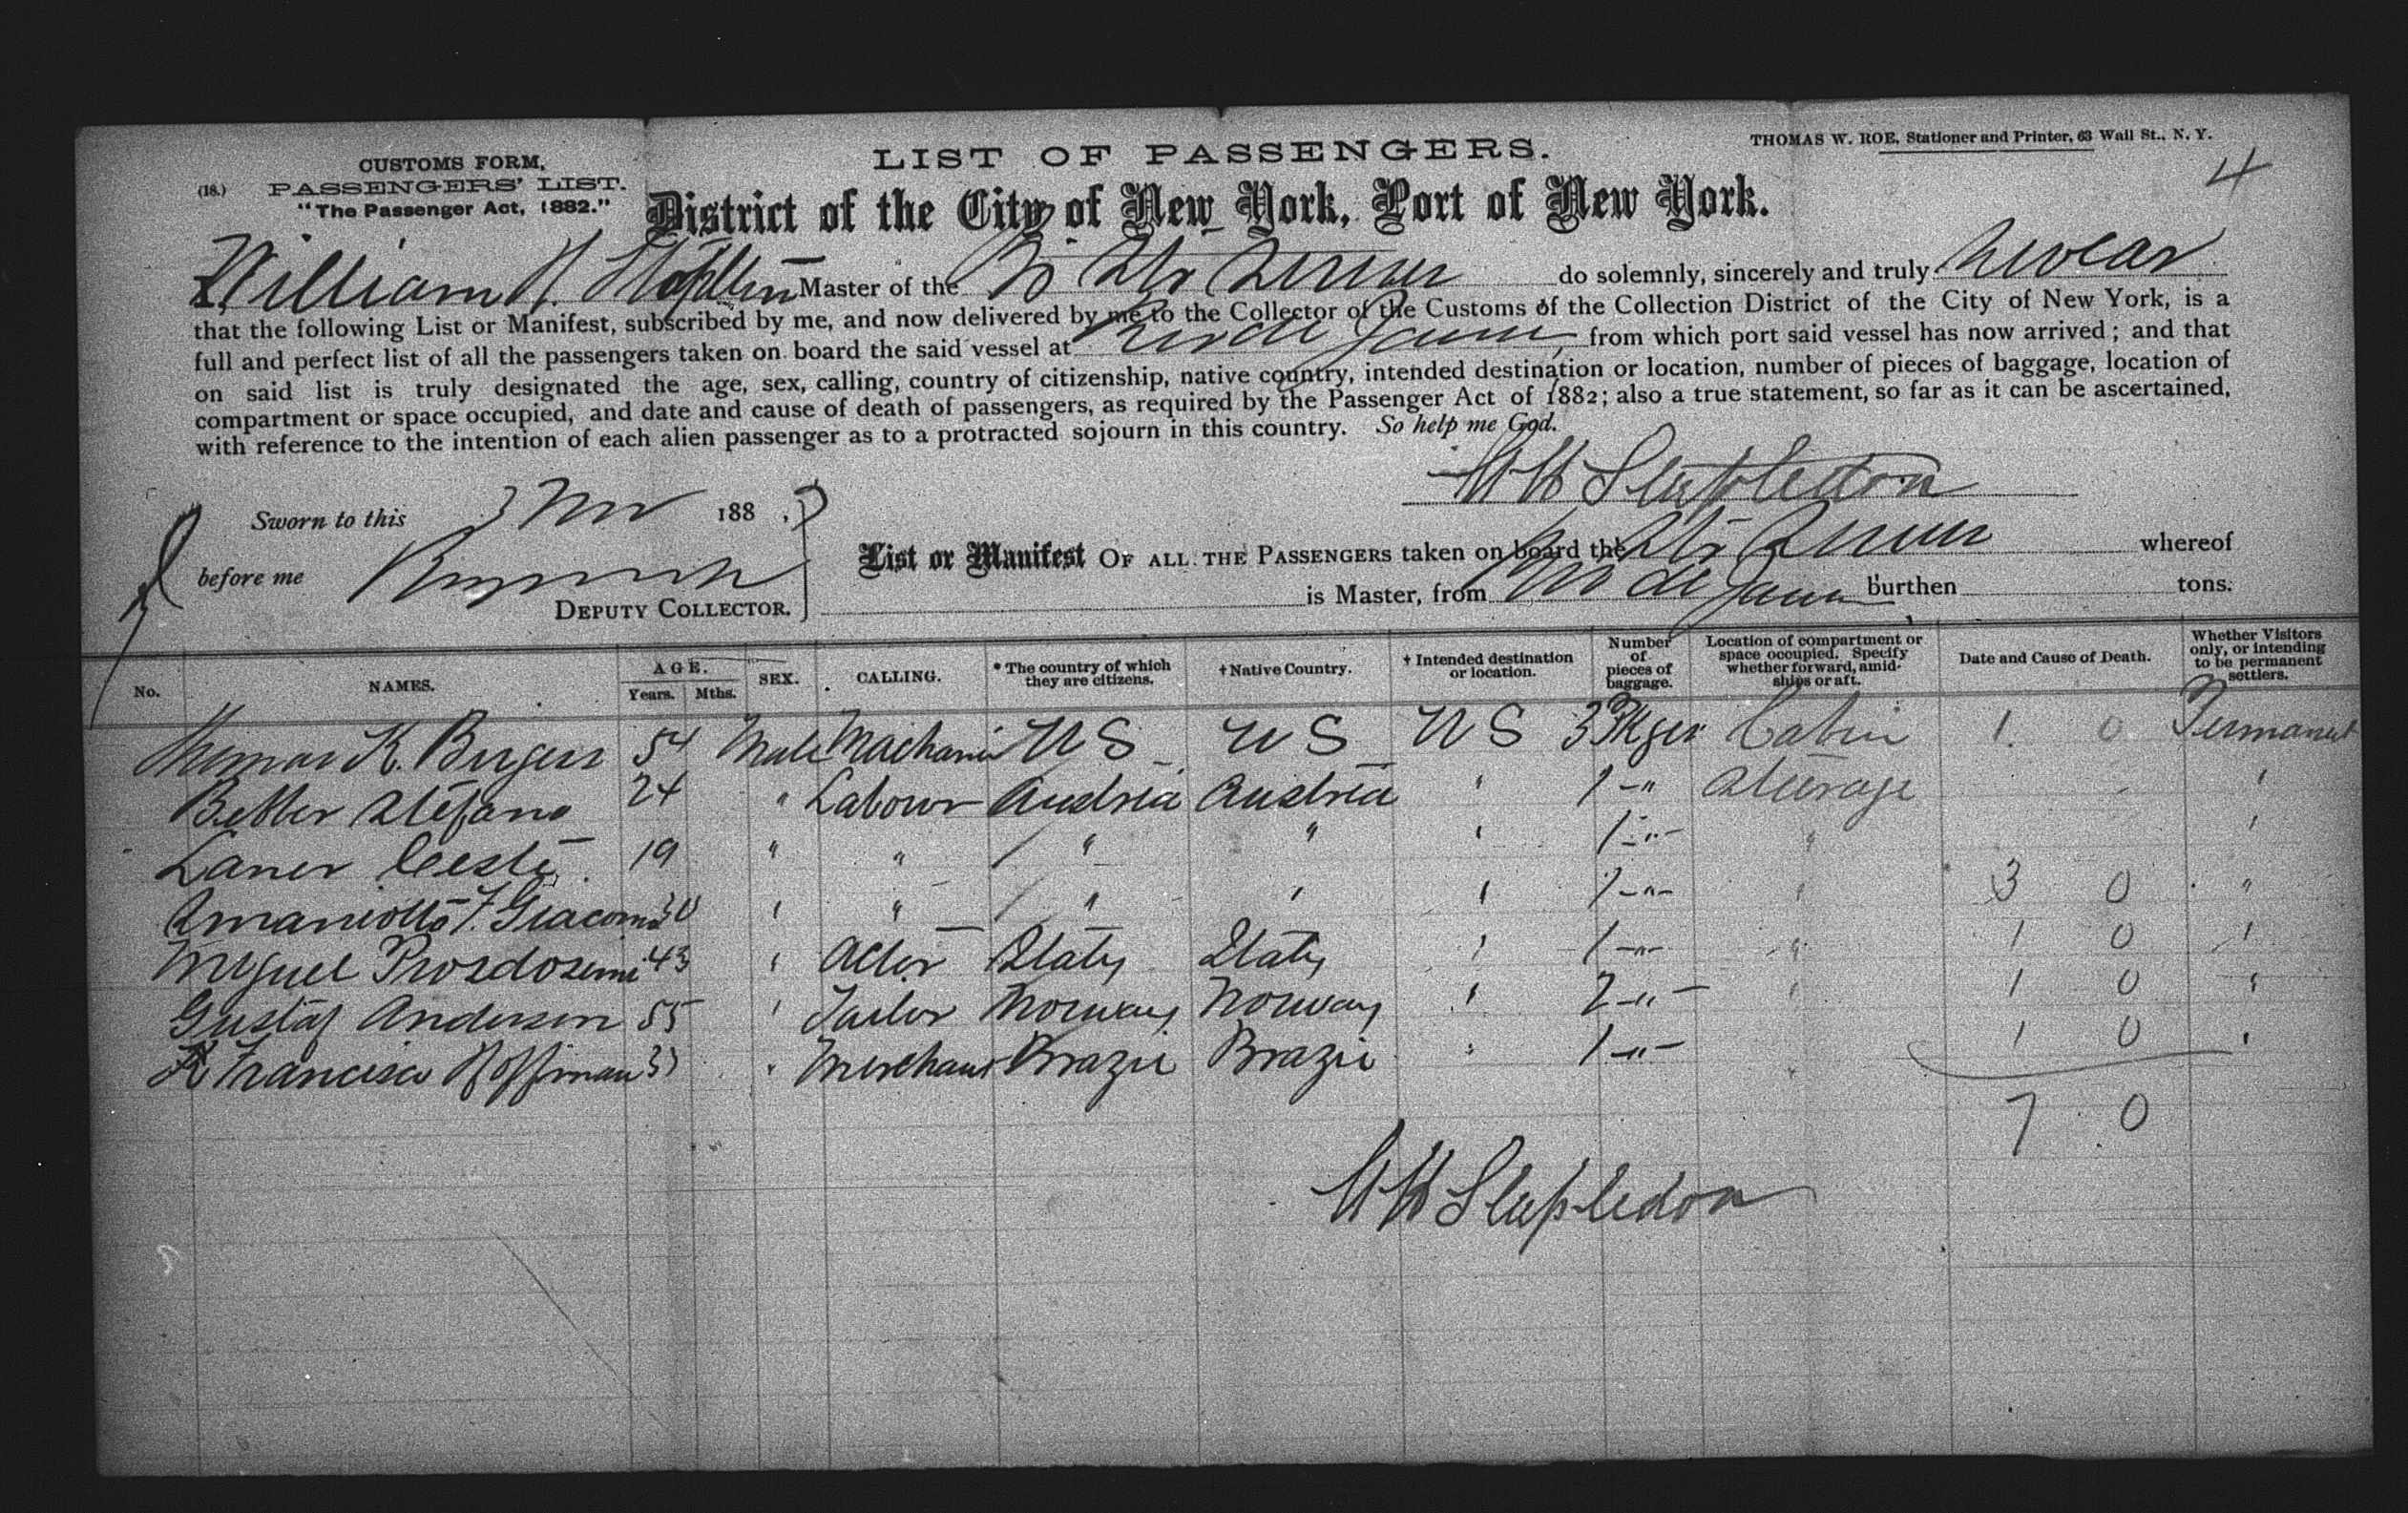 THOMAS W. ROE, Stationer and Printer, 63 Wall St., N. Y.
CUSTOMS FORM,
LIST OF PASSENGERS.
(18.) PASSENGERS' LIST.
"The Passenger Act, 1882."
4
District of the City of New York, Port of New York.
I, William H. Master of the Br Str do solemnly, sincerely and truly swear
that the following List or Manifest, subscribed by me, and now delivered by me to the Collector of the Customs of the Collection District of the City of New York, is a
full and perfect list of all the passengers taken on board the said vessel at Rio de Janeiro, from which port said vessel has now arrived; and that
on said list is truly designated the age, sex, calling, country of citizenship, native country, intended destination or location, number of pieces of baggage, location of
compartment or space occupied, and date and cause of death of passengers, as required by the Passenger Act of 1882; also a true statement, so far as it can be ascertained,
with reference to the intention of each alien passenger as to a protracted sojourn in this country. So help me God.
W H Stapledon
Sworn to this 3 Nov 188 ,
List or Manifest OF ALL THE PASSENGERS taken on board the Str whereof
before me
DEPUTY COLLECTOR.
is Master, from Rio de Janeiro burthen tons.
No. NAMES. AGE. Years. Mths. SEX. CALLING. * The country of which they are citizens. † Native Country. † Intended destination or location. Number of pieces of baggage. Location of compartment or space occupied. Specify whether forward, amidships or aft. Date and Cause of Death. Whether Visitors only, or intending to be permanent settlers.
Thomas K. Burgess 54 Male Machanic U S U S U S 3 Pkges Cabin 1 0 Permanent
Better Stefano 24 " Labour Austria Austria ' 1 -"- Steerage '
Laner Celeste 19 " " / " " ' 1 -"- " '
F. Giacomo 30 ' " / " ' ' 1 -"- ' 3 0 "
Miguel Prosdosimi 43 ' Actor Italy Italy ' 1 -"- " 1 0 '
Gustaf Anderson 55 ' Tailor Norway Norway ' 2 -"- ' 1 0 '
Francisco Hoffman 33 ' Merchant Brazil Brazil " 1 -"- ' 1 0 '
7 0
W H Stapledon